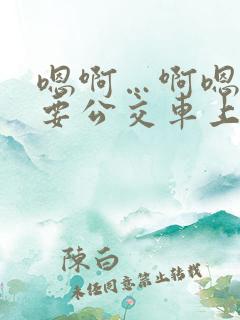 嗯啊…啊嗯
要公交车上
陳白
未经同意禁止转载